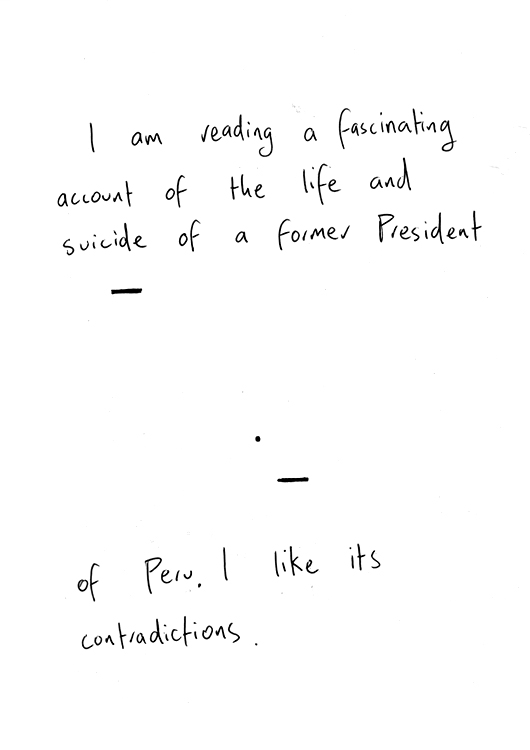 I am reading a fascinating
account of the life and
suicide of a former President
of Peru. I like its
contradictions.